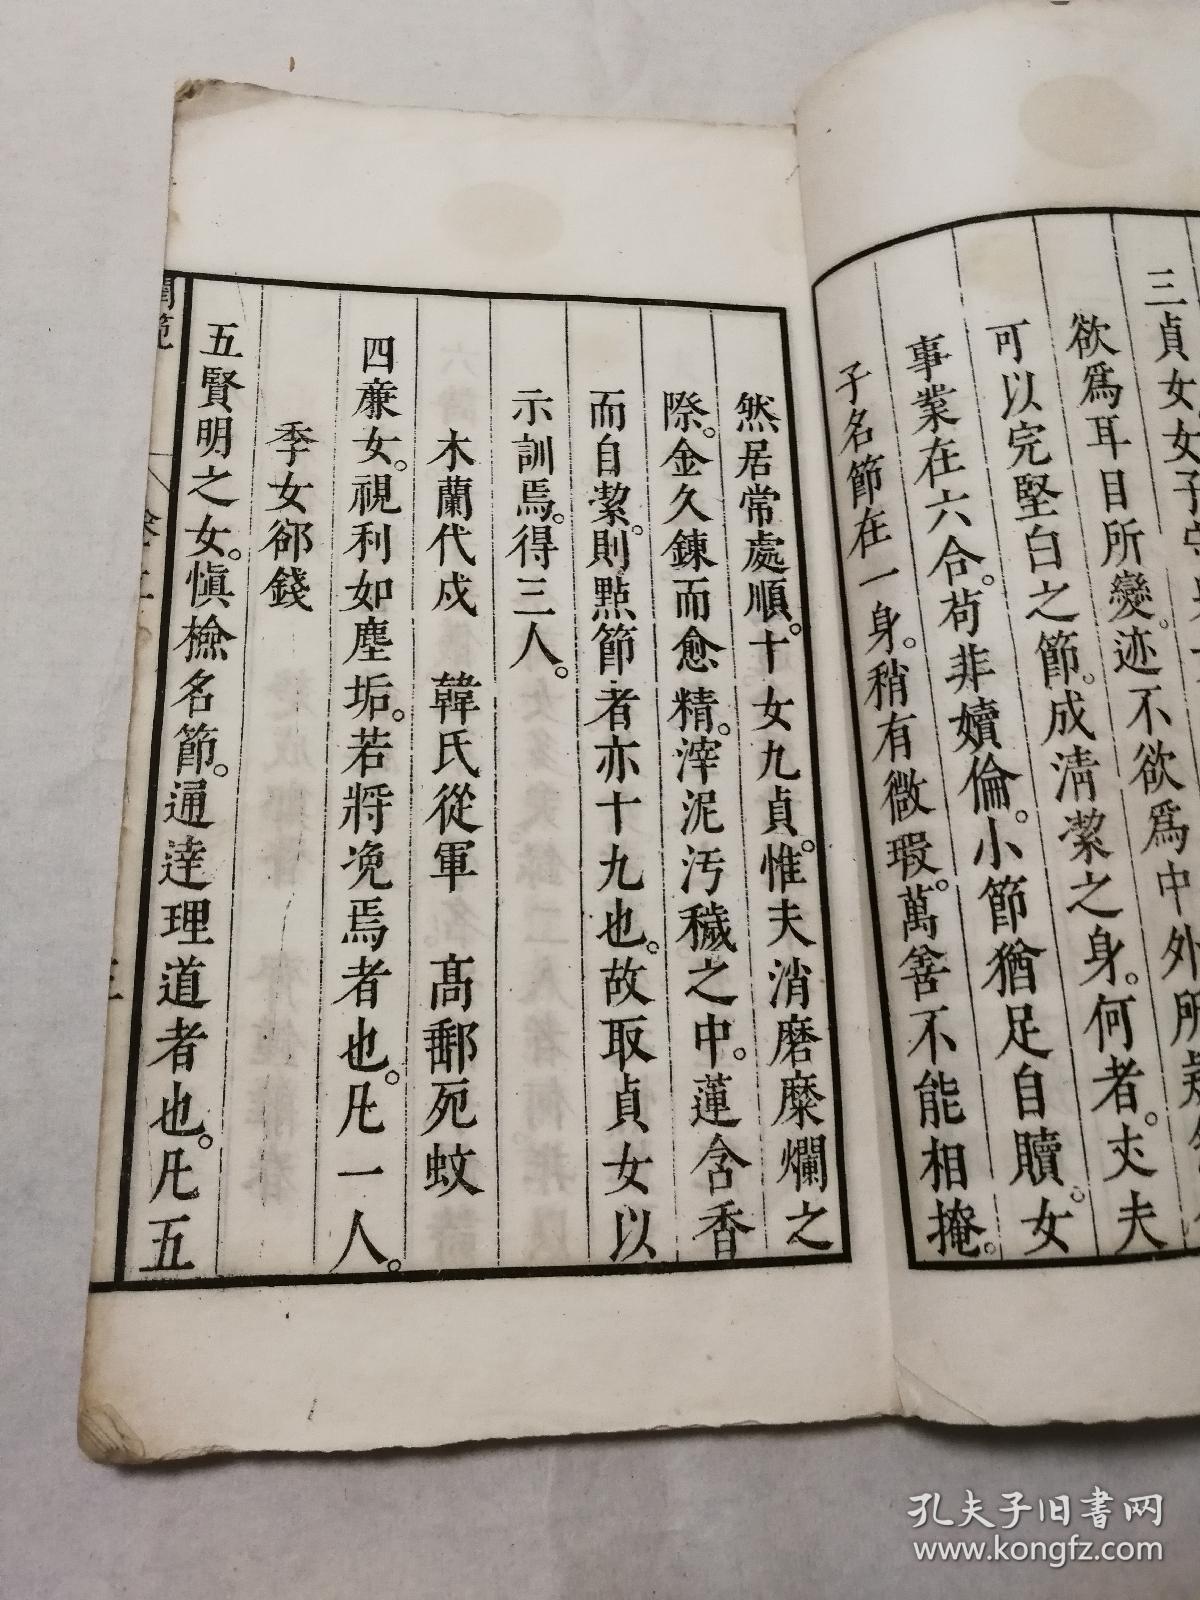 三貞女女子
欲爲耳目所變。迹不欲爲中外所
可以完堅白之節。成清潔之身。何者。丈夫
事業在六合。茍非嬻倫。小節猶足自贖。女
子名節在一身。稍有微瑕。萬善不能相掩。
然居常處順。十女九貞。惟夫消磨糜爛之
際。金久鍊而愈精。滓泥汚穢之中。蓮含香
而自潔。則㸃節者亦十九也。故取貞女以
示訓焉。得三人。
木蘭代戍　韓氏從軍　高郵死蚊
四亷女。視利如塵垢。若將凂焉者也。凡一人。
季女郤錢
五賢明之女。愼檢名節。通達理道者也。凡五
閨範
孔夫子旧书网
www.kongfz.com